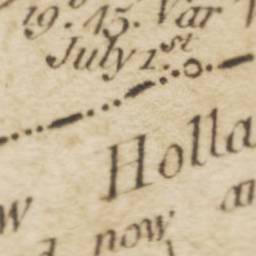 19.° 45. Var
July 1.st
Holla
w
now